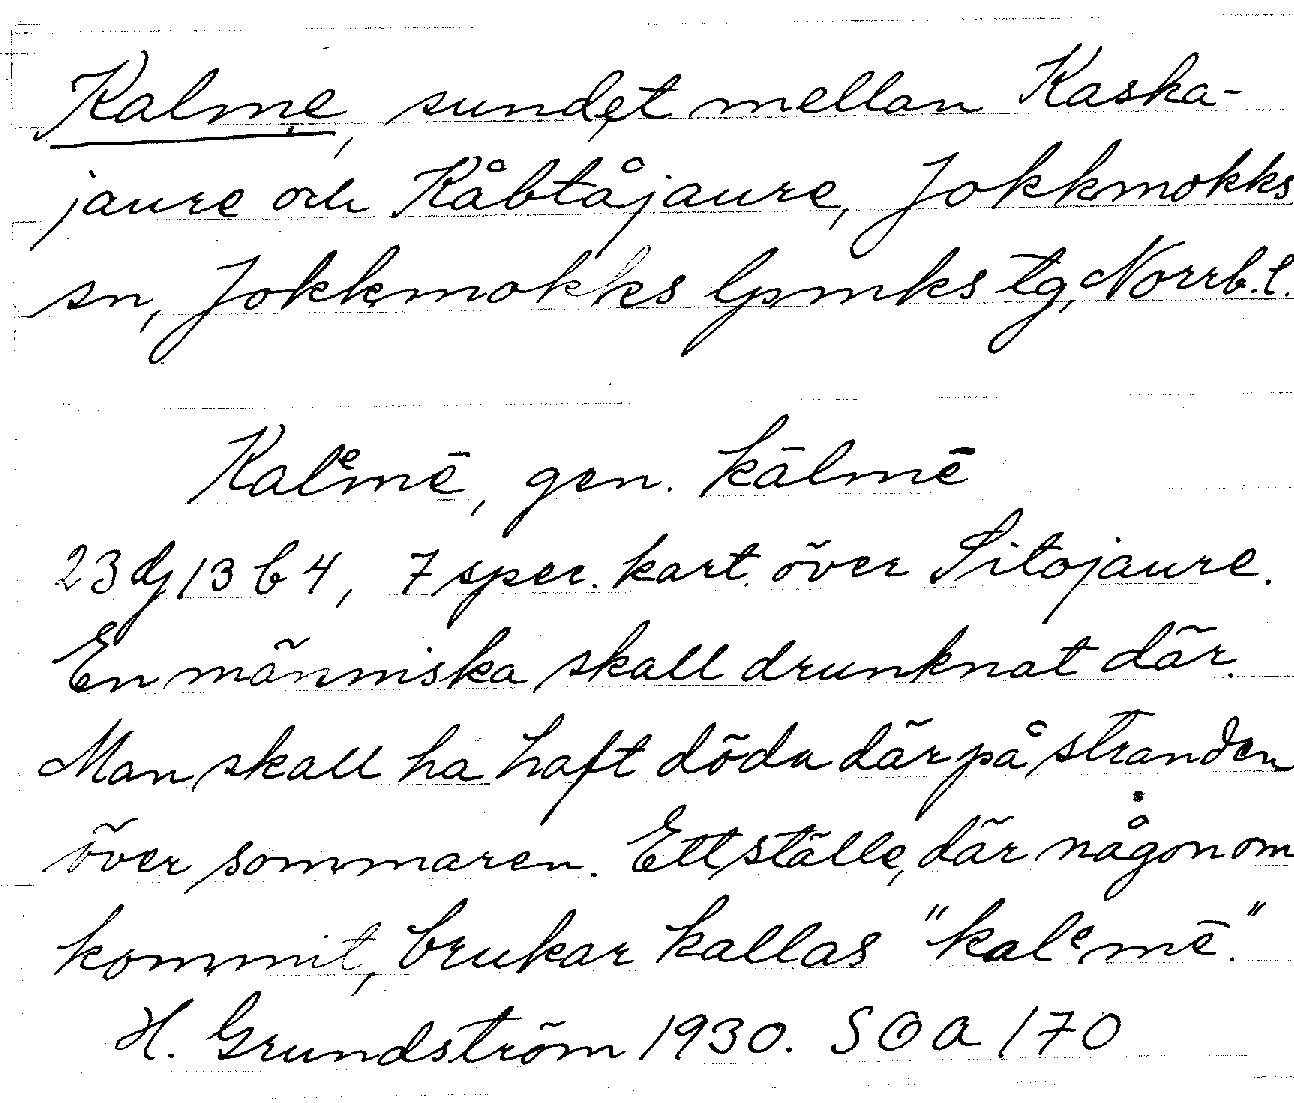 Kalme, sundet mellan Kaska-
jaure och Råbtåjaure, Jokkmokks
sn, Jokkmokks lpmks tg, Norrb. l.
Kalᵉmē, gen. kālmē
23 dj 13 b 4, 7 spec. kart. över Sitojaure.
En människa skall drunknat där.
Man skall ha haft döda där på stranden
över sommaren. Ett ställe, där någon om
kommit, brukar kallas "kalᵉmē."
H. Grundström 1930. SOA 170